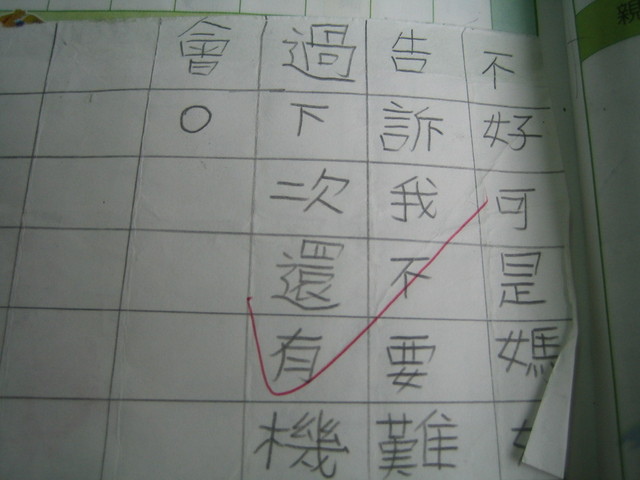 親
不好可是媽
告訴我不要難
過下次還有機
會。